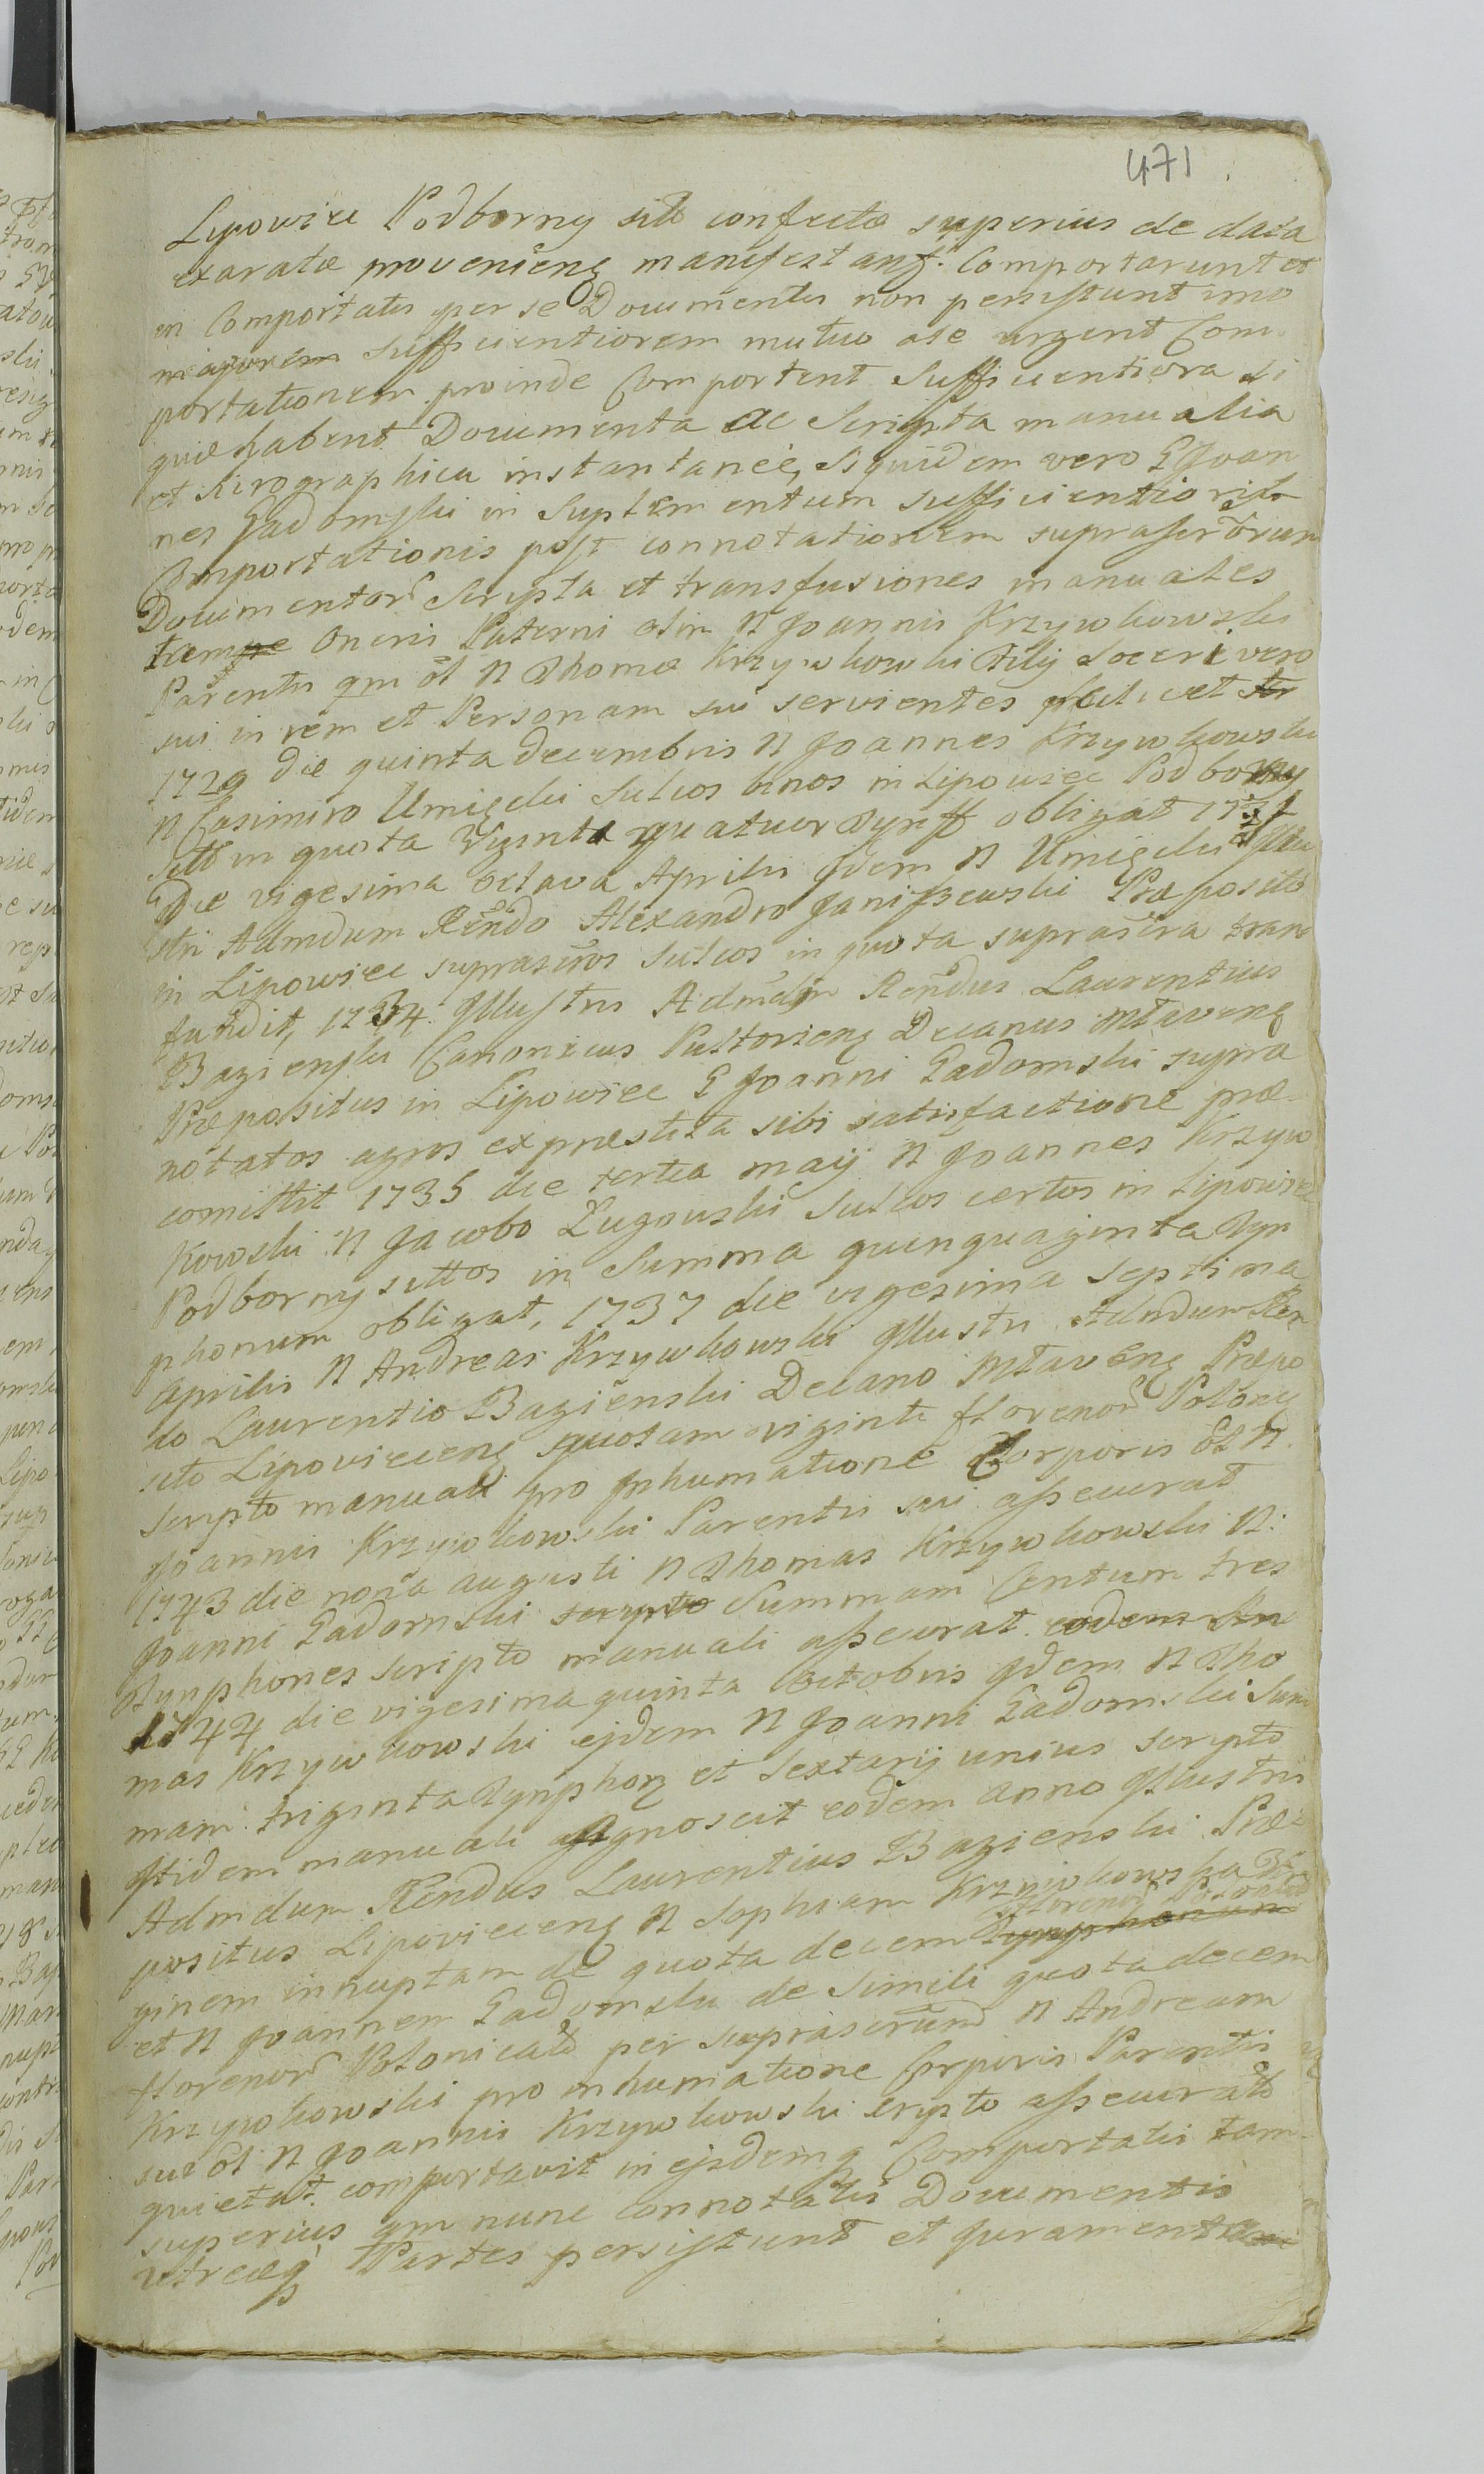 471
Lipowiec Podborny sito confecta superius de data
exaratæ provenienʒ manifestanʒ. Comportarunt et
in Comportatis per se Documentis non persistunt imo
majorem sufficientiorem mutuo a se urgent Com-
portationem proinde Comportent sufficientiora si
quæ habent Documenta ac Scripta manualia
et sirographica instantanee, Siquidem vero G Joan
nes Gadomski in Suplementum sufficientioris
Comportationis post connotationem suprascrõrum
Documentor̃ Scripta et transfusiones manuales
Oneris Paterni olim N Joannis Krzywkowski
Parentis qm õl N Thomæ Krzywkowski Filij Soceri vero
sui in rem et Personam sui servientes scilicet
1729 die quinta decembris N Joannes Krzywkowski
N Casimiro Umięcki Sulcos binos in Lipowiec Podborny
sitt in quota Viginta quatuor Tynff obligat
Die vigesima octava Aprilis Jdem N Umięcki Illu
stri Admdum Rñdo Alexandro Janiszewski Præposito
in Lipowiec suprascros Sulcos in quota suprascra tran
fundit, 1734. Illustris Admdm Rendus Laurentius
Bagienski Canonicus Pultovienʒ Decanus Młavenʒ
Præpositus in Lipowiec G Joanni Gadomski supra
notatos agros ex præstita sibi satisfactione præ-
comittit 1735 die tertia maij N Joannes Krzyw
kowski N Jacobo Zugowski Sulcos certos in Lipowiec
Podborny sittos in Summa quinquaginta Tyn
phonum obligat, 1737 die vigesima septima
Aprilis N Andreas Krzywkowski Illustri Admdum Ren
do Laurentio Bagienski Decano Młavenʒ Præpo
sito Lipoviecenʒ quotam viginti florenor̃ Polonʒ
scripto manuali pro Inhumatione Corporis õl N.
Joannis Krzywkowski Parentis sui assecurat
1743 die nona augusti N Thomas Krzywkowski N:
Joanni Gadomski scripto Summam Centum tres
Tynphones scripto manuali assecurat. eodem An
1744 die vigesima quinta Octobris Jdem N Tho
mas Krzywkowski ejdem N Joanni Gadomski Sum
mam triginta Tynphonʒ et Sextarij unius scripto
Itidem manuali agnoscit eodem anno Illustris
Admdum Rendus Laurentius Bagienski Præ-
positus Lipoviecenʒ N Sophiam Krzywkowska Vir
florenor̃ Polonical
ginem innuptam de quota decem Tynphonum
et N Joannem Gadomski de Simili quota decem
florenor̃ Polonical per suprascrum N Andream
Krzywkowski pro inhumatione Corporis Parentis
sui õl N Joannis Krzywkowski scripto assecurato
quietat. comportavit in ejsdemq Comportatis tam
superius qm nunc connotatis Documentis
utræq Partes persistunt et Juramentum